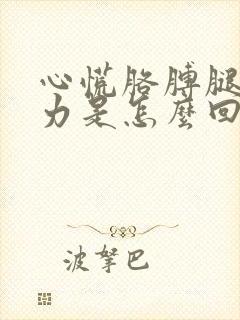 心慌胳膊腿
力是怎麼回
波拏巴